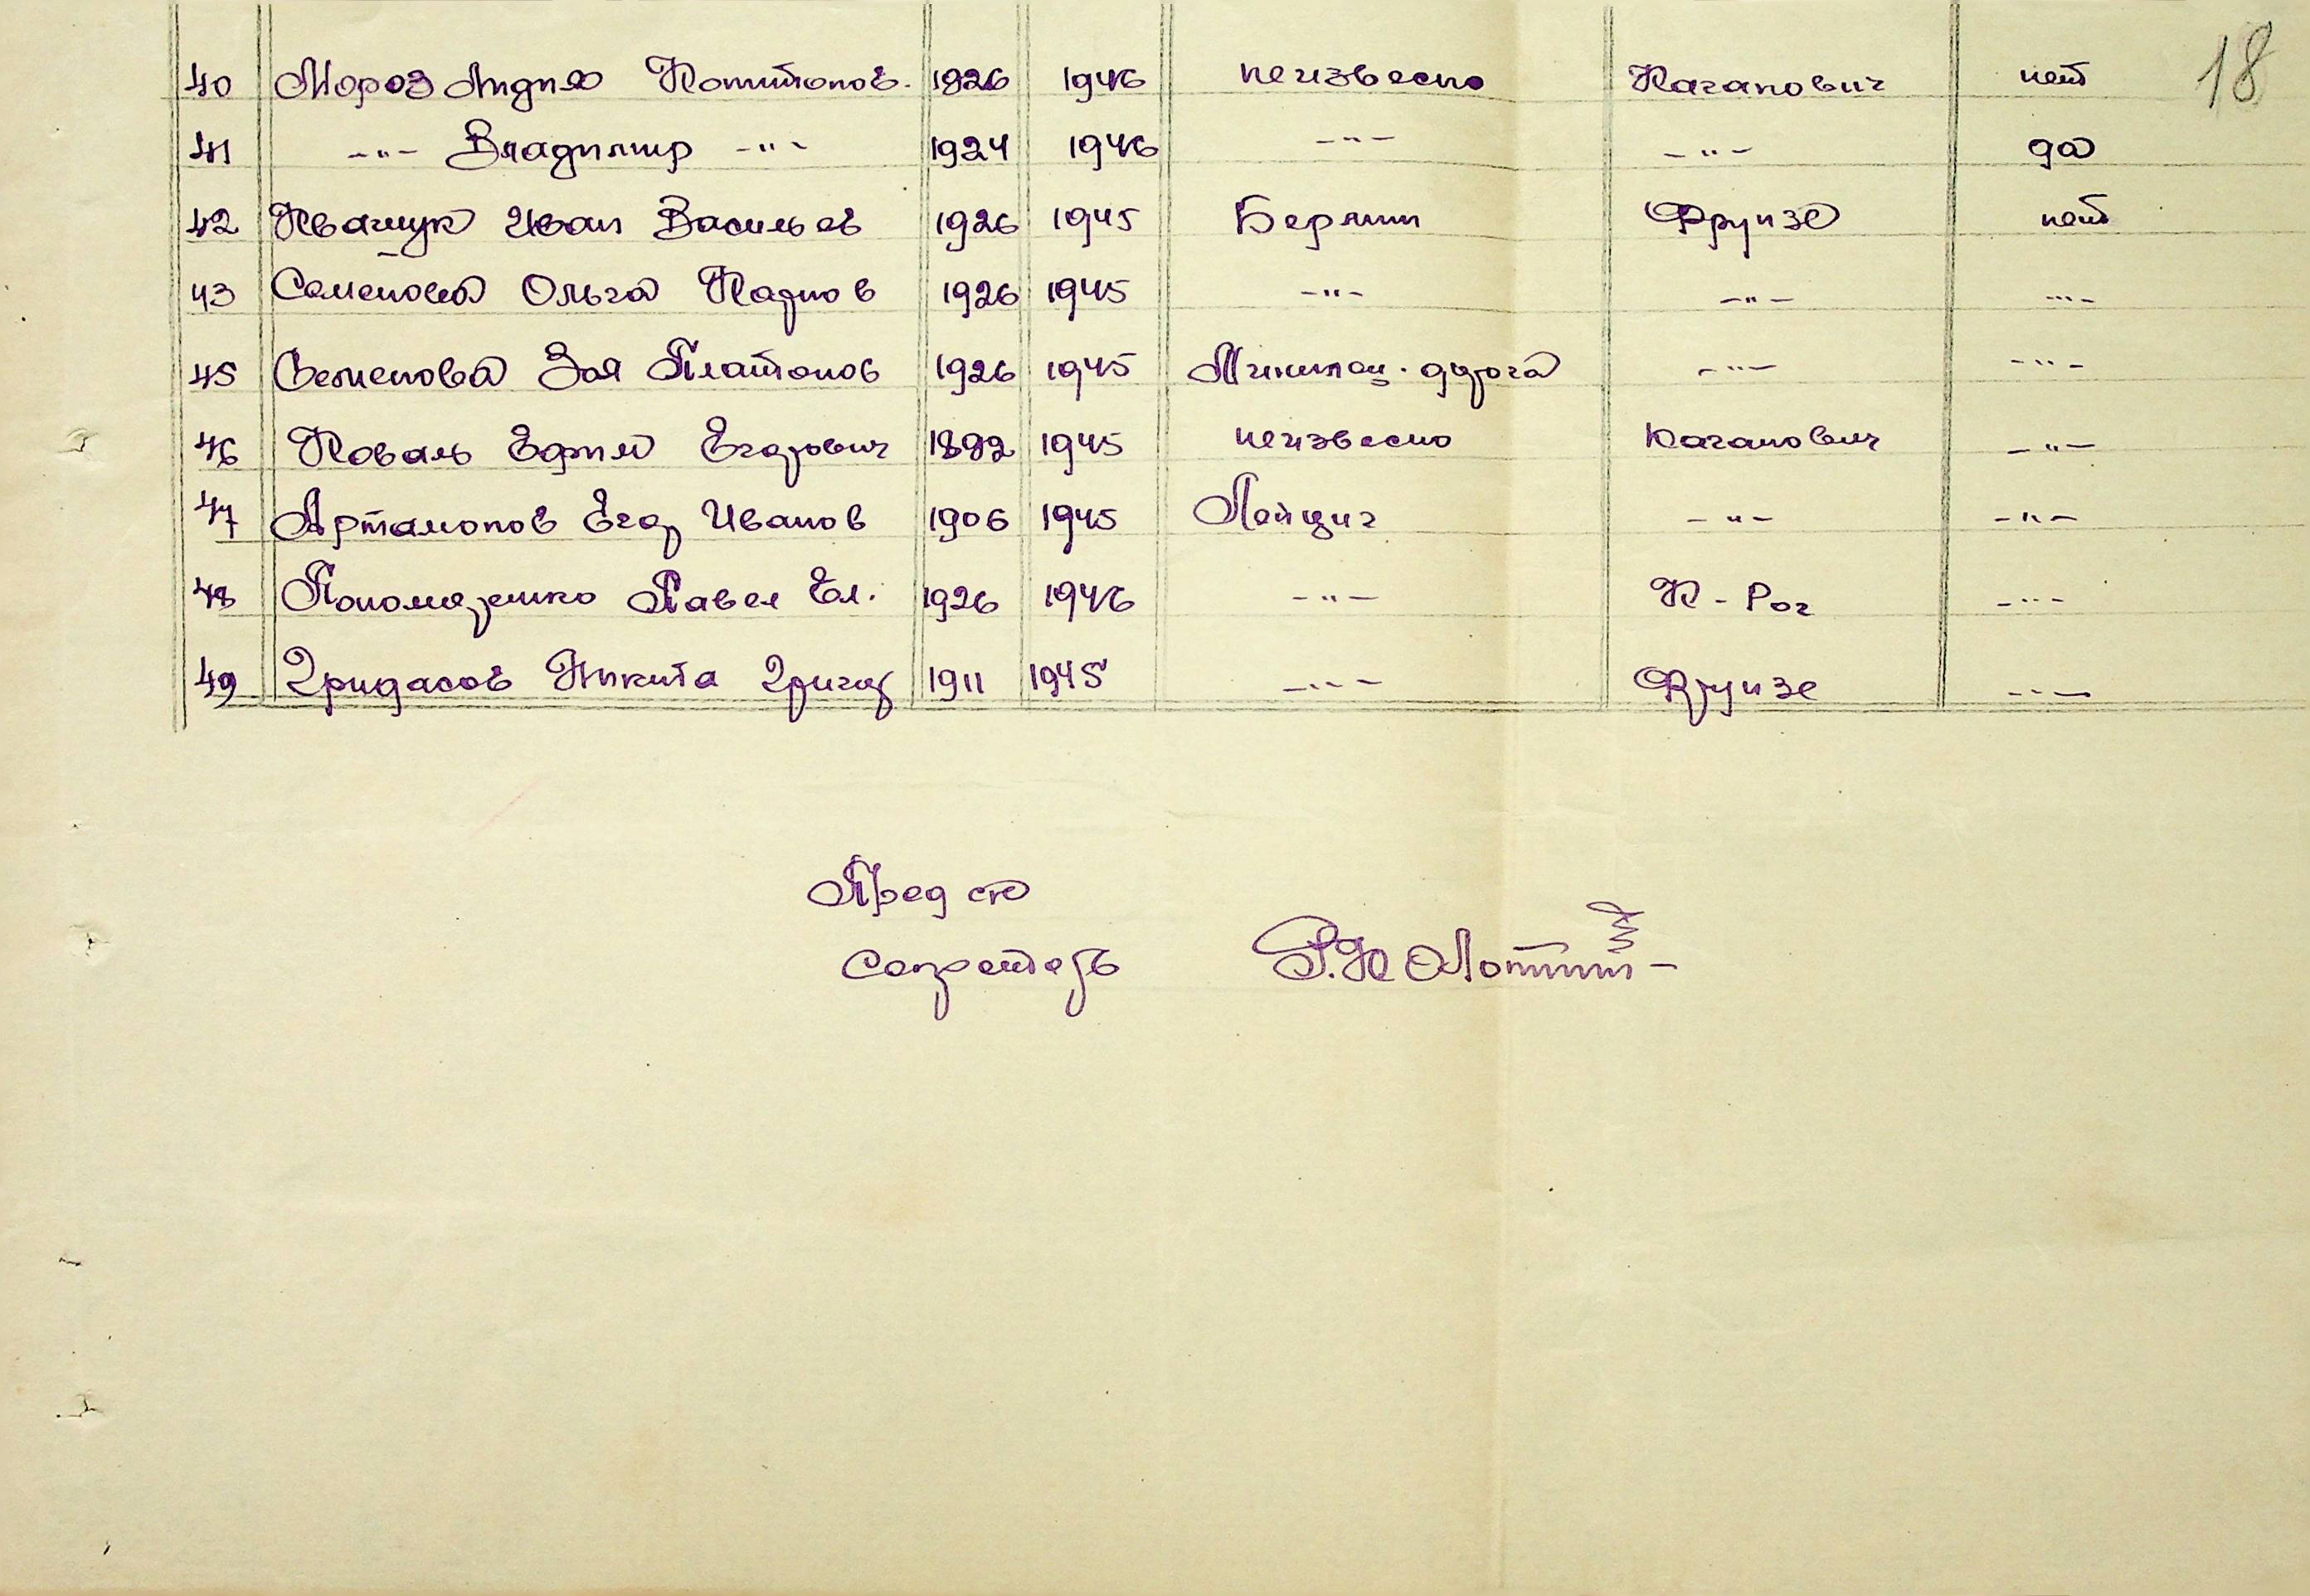 18
40 Мороз Лидия Капитонов. 1926 1946 неизвесно Каганович нет
41 -"- Владимир -"- 1924 1946 -"- -"- да
42 Квачук Иван Васильев 1926 1945 Берлин Фрунзе нет
43 Семенова Ольга Карпов 1926 1945 -"- -"- -"-
45 Семенова Зоя Платонов 1926 1945 дорога -"- -"-
46 Коваль Ефим Егорович 1892 1945 неизвесно Каганович -"-
47 Артамонов Егор Иванов 1906 1945 Лейциг -"- -"-
48 Пономаренко Павел Ел. 1926 1946 -"- К-Рог -"-
49 Гридасов Никита Григор 1911 1945 -"- Фрунзе -"-
Пред с/с
Секретарь